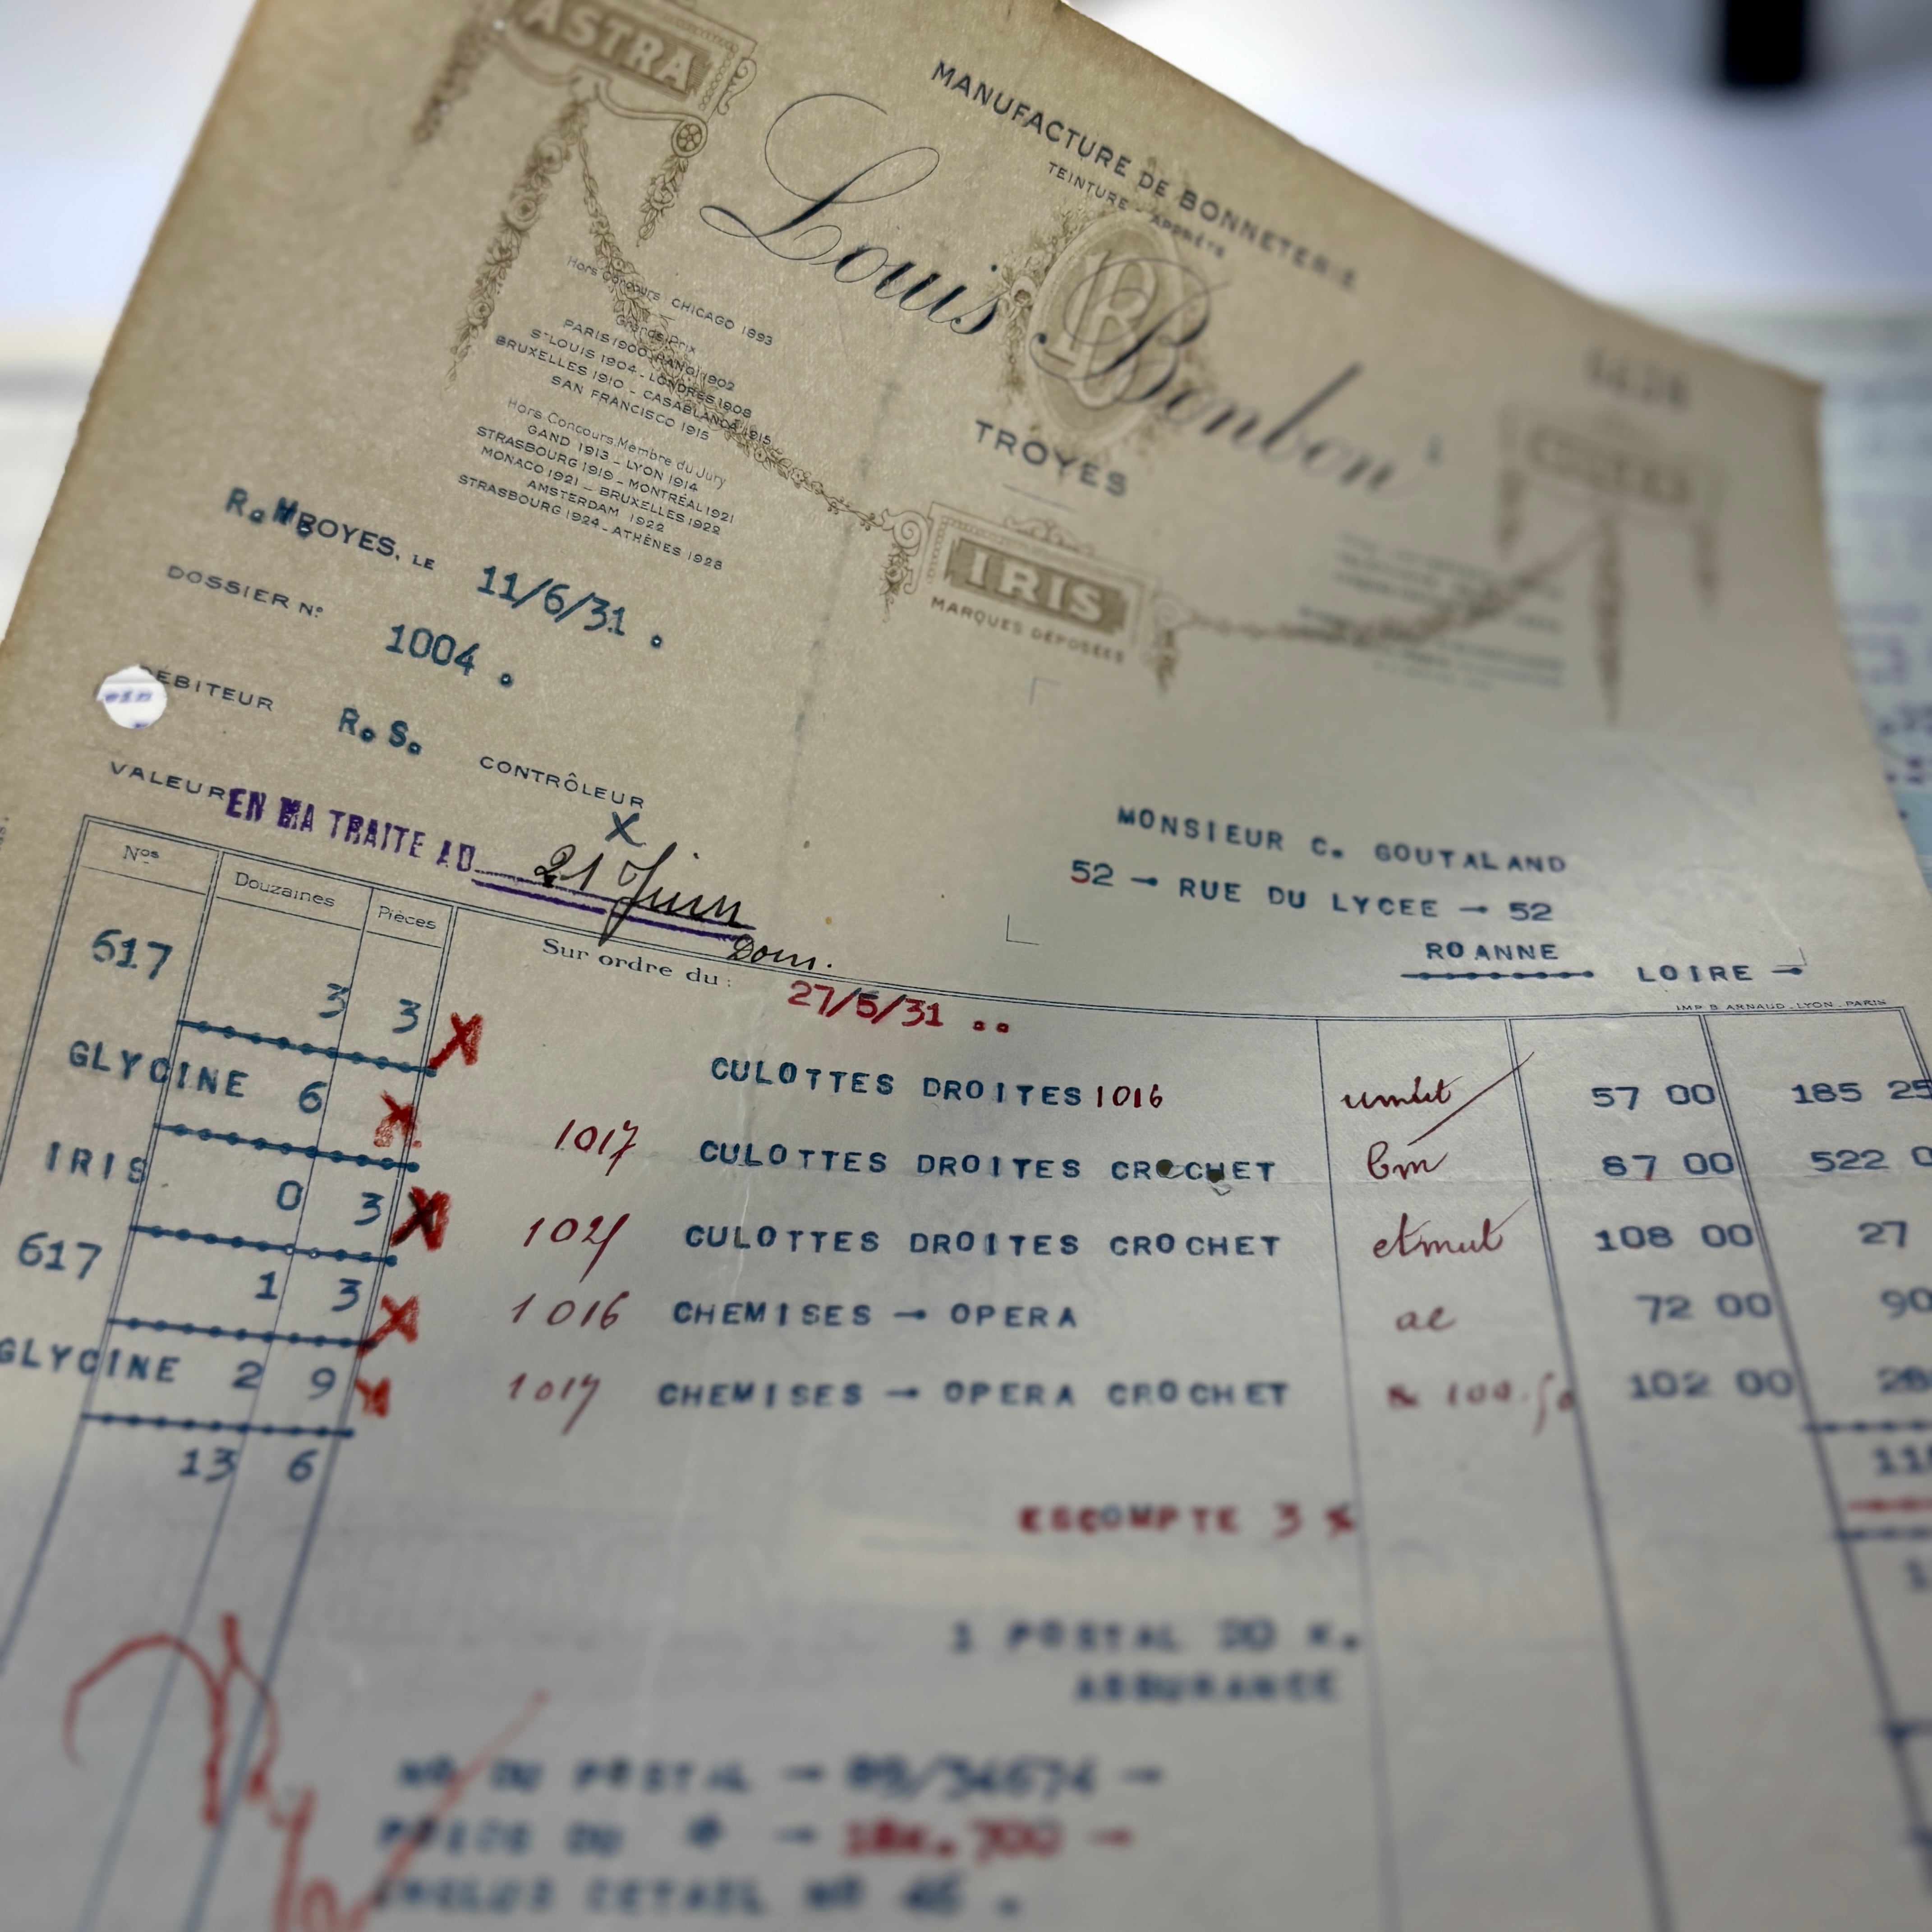 ASTRA
MANUFACTURE DE BONNETERIE
TEINTURE - APPRÊTS
Louis Bonbon
TROYES
Hors Concours CHICAGO 1893
Grands Prix
PARIS 1900 - HANOI 1902
ST LOUIS 1904 - LONDRES 1908
BRUXELLES 1910 - CASABLANCA 1915
SAN FRANCISCO 1915
Hors Concours, Membre du Jury
GAND 1913 - LYON 1914
STRASBOURG 1919 - MONTRÉAL 1921
MONACO 1921 - BRUXELLES 1922
AMSTERDAM 1922
STRASBOURG 1924 - ATHÈNES 1928
IRIS
MARQUES DÉPOSÉES
OYES, LE 11/6/31.
DOSSIER No 1004.
DÉBITEUR R. S. CONTRÔLEUR X
VALEUR EN MA TRAITE AU 21 Juin
MONSIEUR C. GOUTALAND
52 - RUE DU LYCEE - 52
ROANNE LOIRE -
IMP. B. ARNAUD_LYON_PARIS
Nos Douzaines Pièces Sur ordre du : 27/5/31 ..
617 3 3 X CULOTTES DROITES 1016 57 00 185 25
GLYCINE 6 X 1017 CULOTTES DROITES CROCHET 87 00 522 0
IRIS 0 3 X 1021 CULOTTES DROITES CROCHET 108 00 27
617 1 3 X 1016 CHEMISES - OPERA ae 72 00 90
GLYCINE 2 9 X 1017 CHEMISES - OPERA CROCHET 102 00 28
13 6 11
ESCOMPTE 3 %
1 POSTAL 20 K.
ASSURANCE
No DU POSTAL - 89/34674 -
POIDS DU - 18K.700 -
INCLUS DETAIL No 46 .